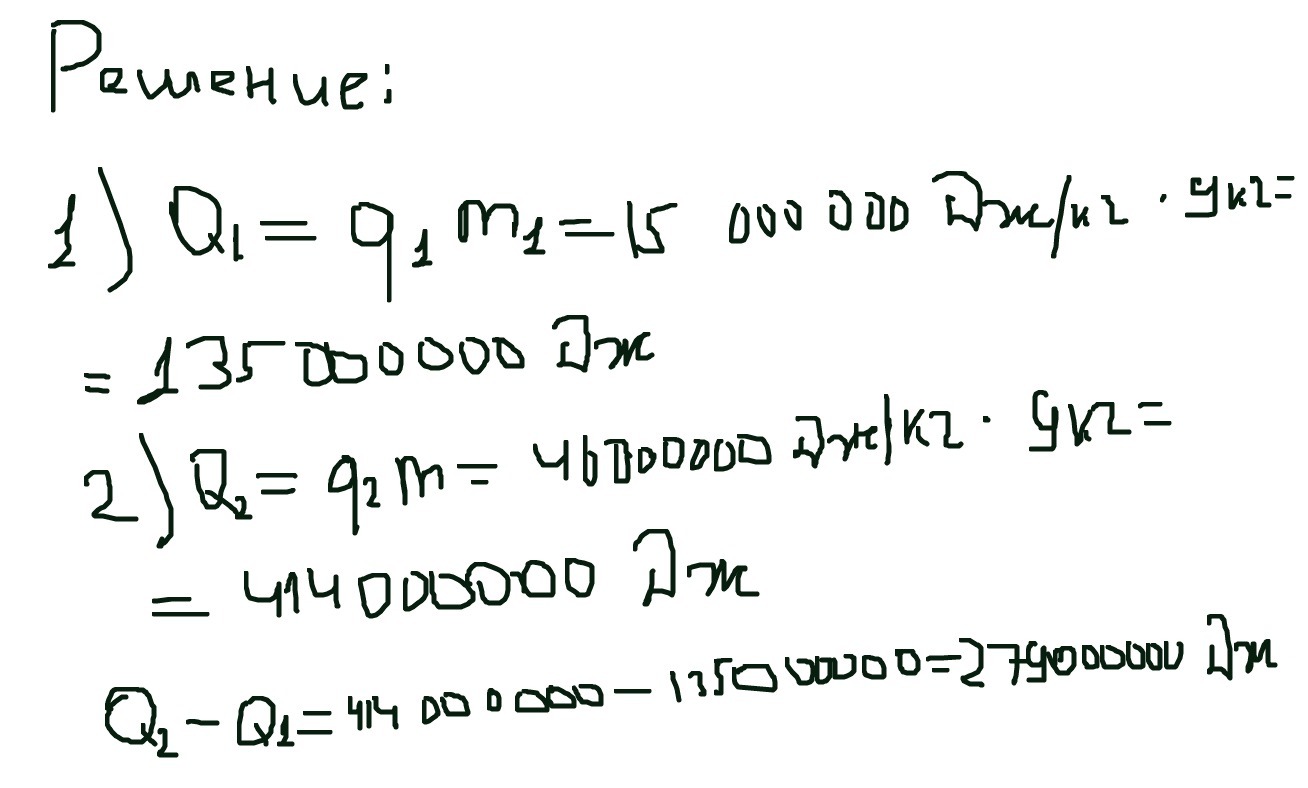 Решение:
1) Q1 = q1 m1 = 15 000 000 Дж/кг · 9кг =
= 135 000 000 Дж
2) Q2 = q2 m = 46000000 Дж/кг · 9кг =
= 414000000 Дж
Q2 - Q1 = 414 000 000 - 135000000 = 279000000 Дж